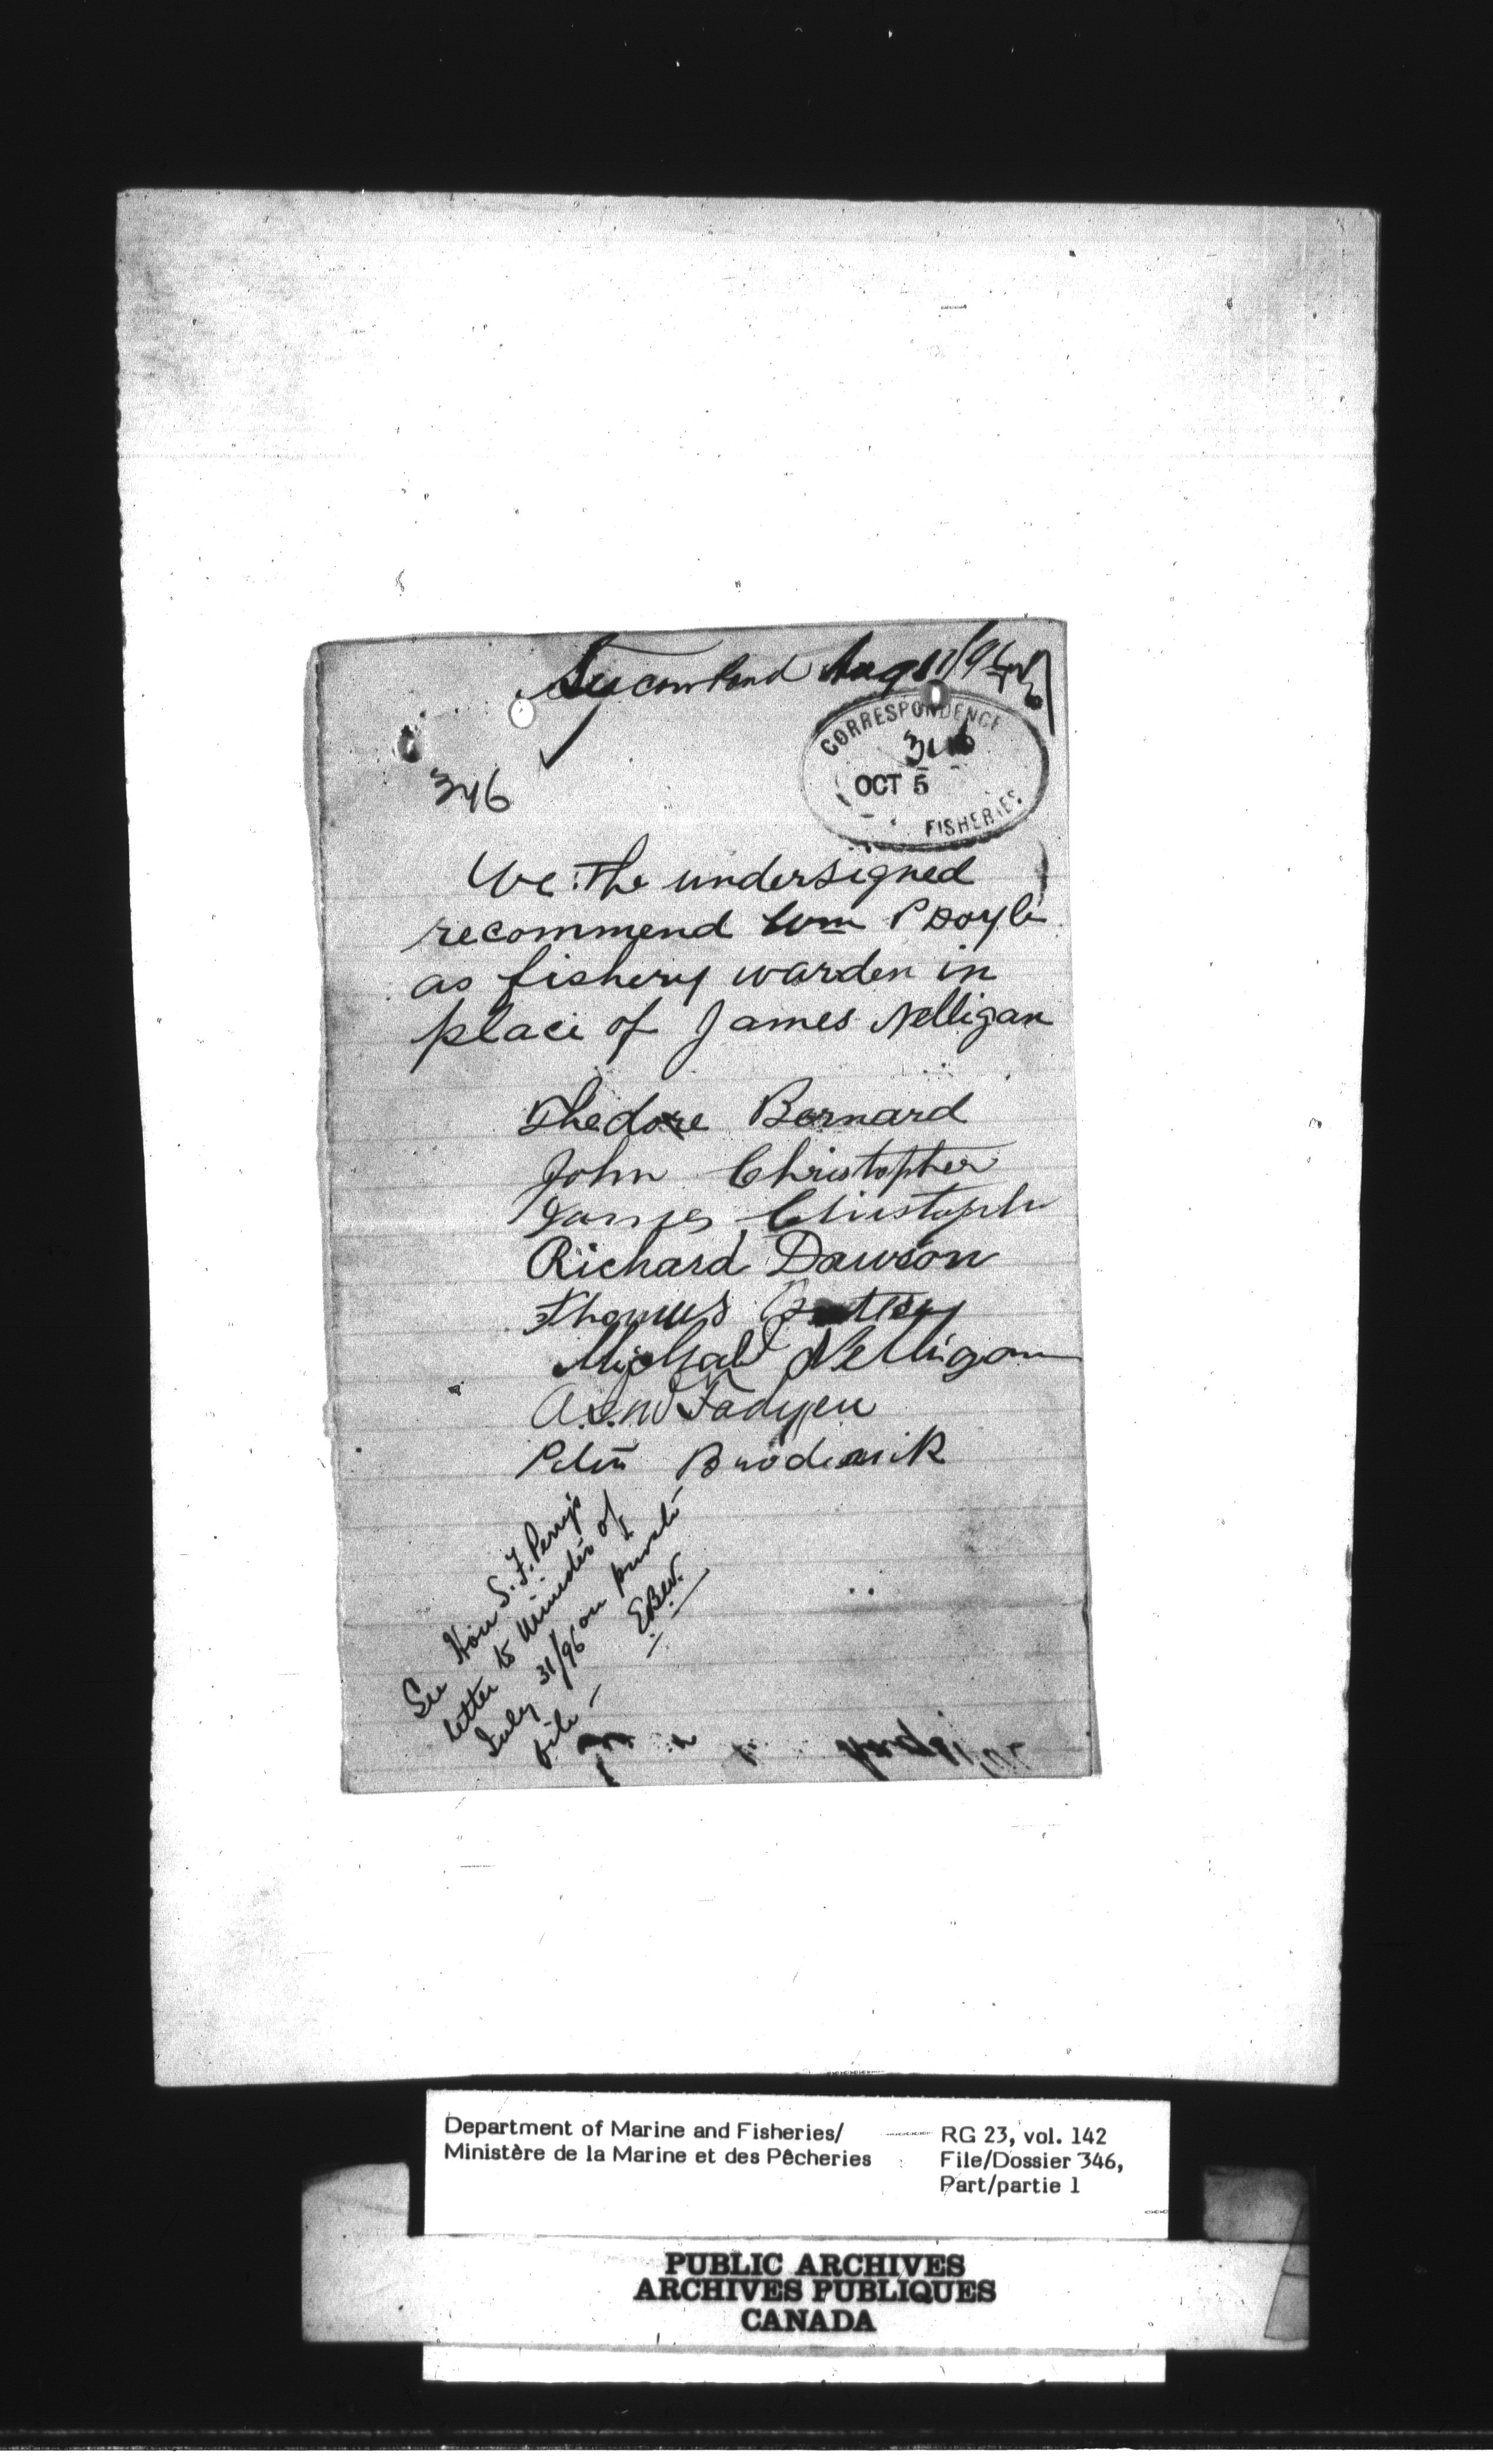 Pond Aug
CORRESPONDENCE
346
OCT 5
FISHERIES
346
We the undersigned
recommend Wm P Doyle
as fishery warden in
place of James Nelligan
Thedore Bernard
John Christopher
James Christopher
Richard Dawson
Thomas
Michael Nelligan
Fadyen
Peter Broderick
See Hon S. F. Perry's
letter to Minister of
July 31/96 on private
file - EBW.
Department of Marine and Fisheries/
Ministère de la Marine et des Pêcheries
RG 23, vol. 142
File/Dossier 346,
Part/partie 1
PUBLIC ARCHIVES
ARCHIVES PUBLIQUES
CANADA